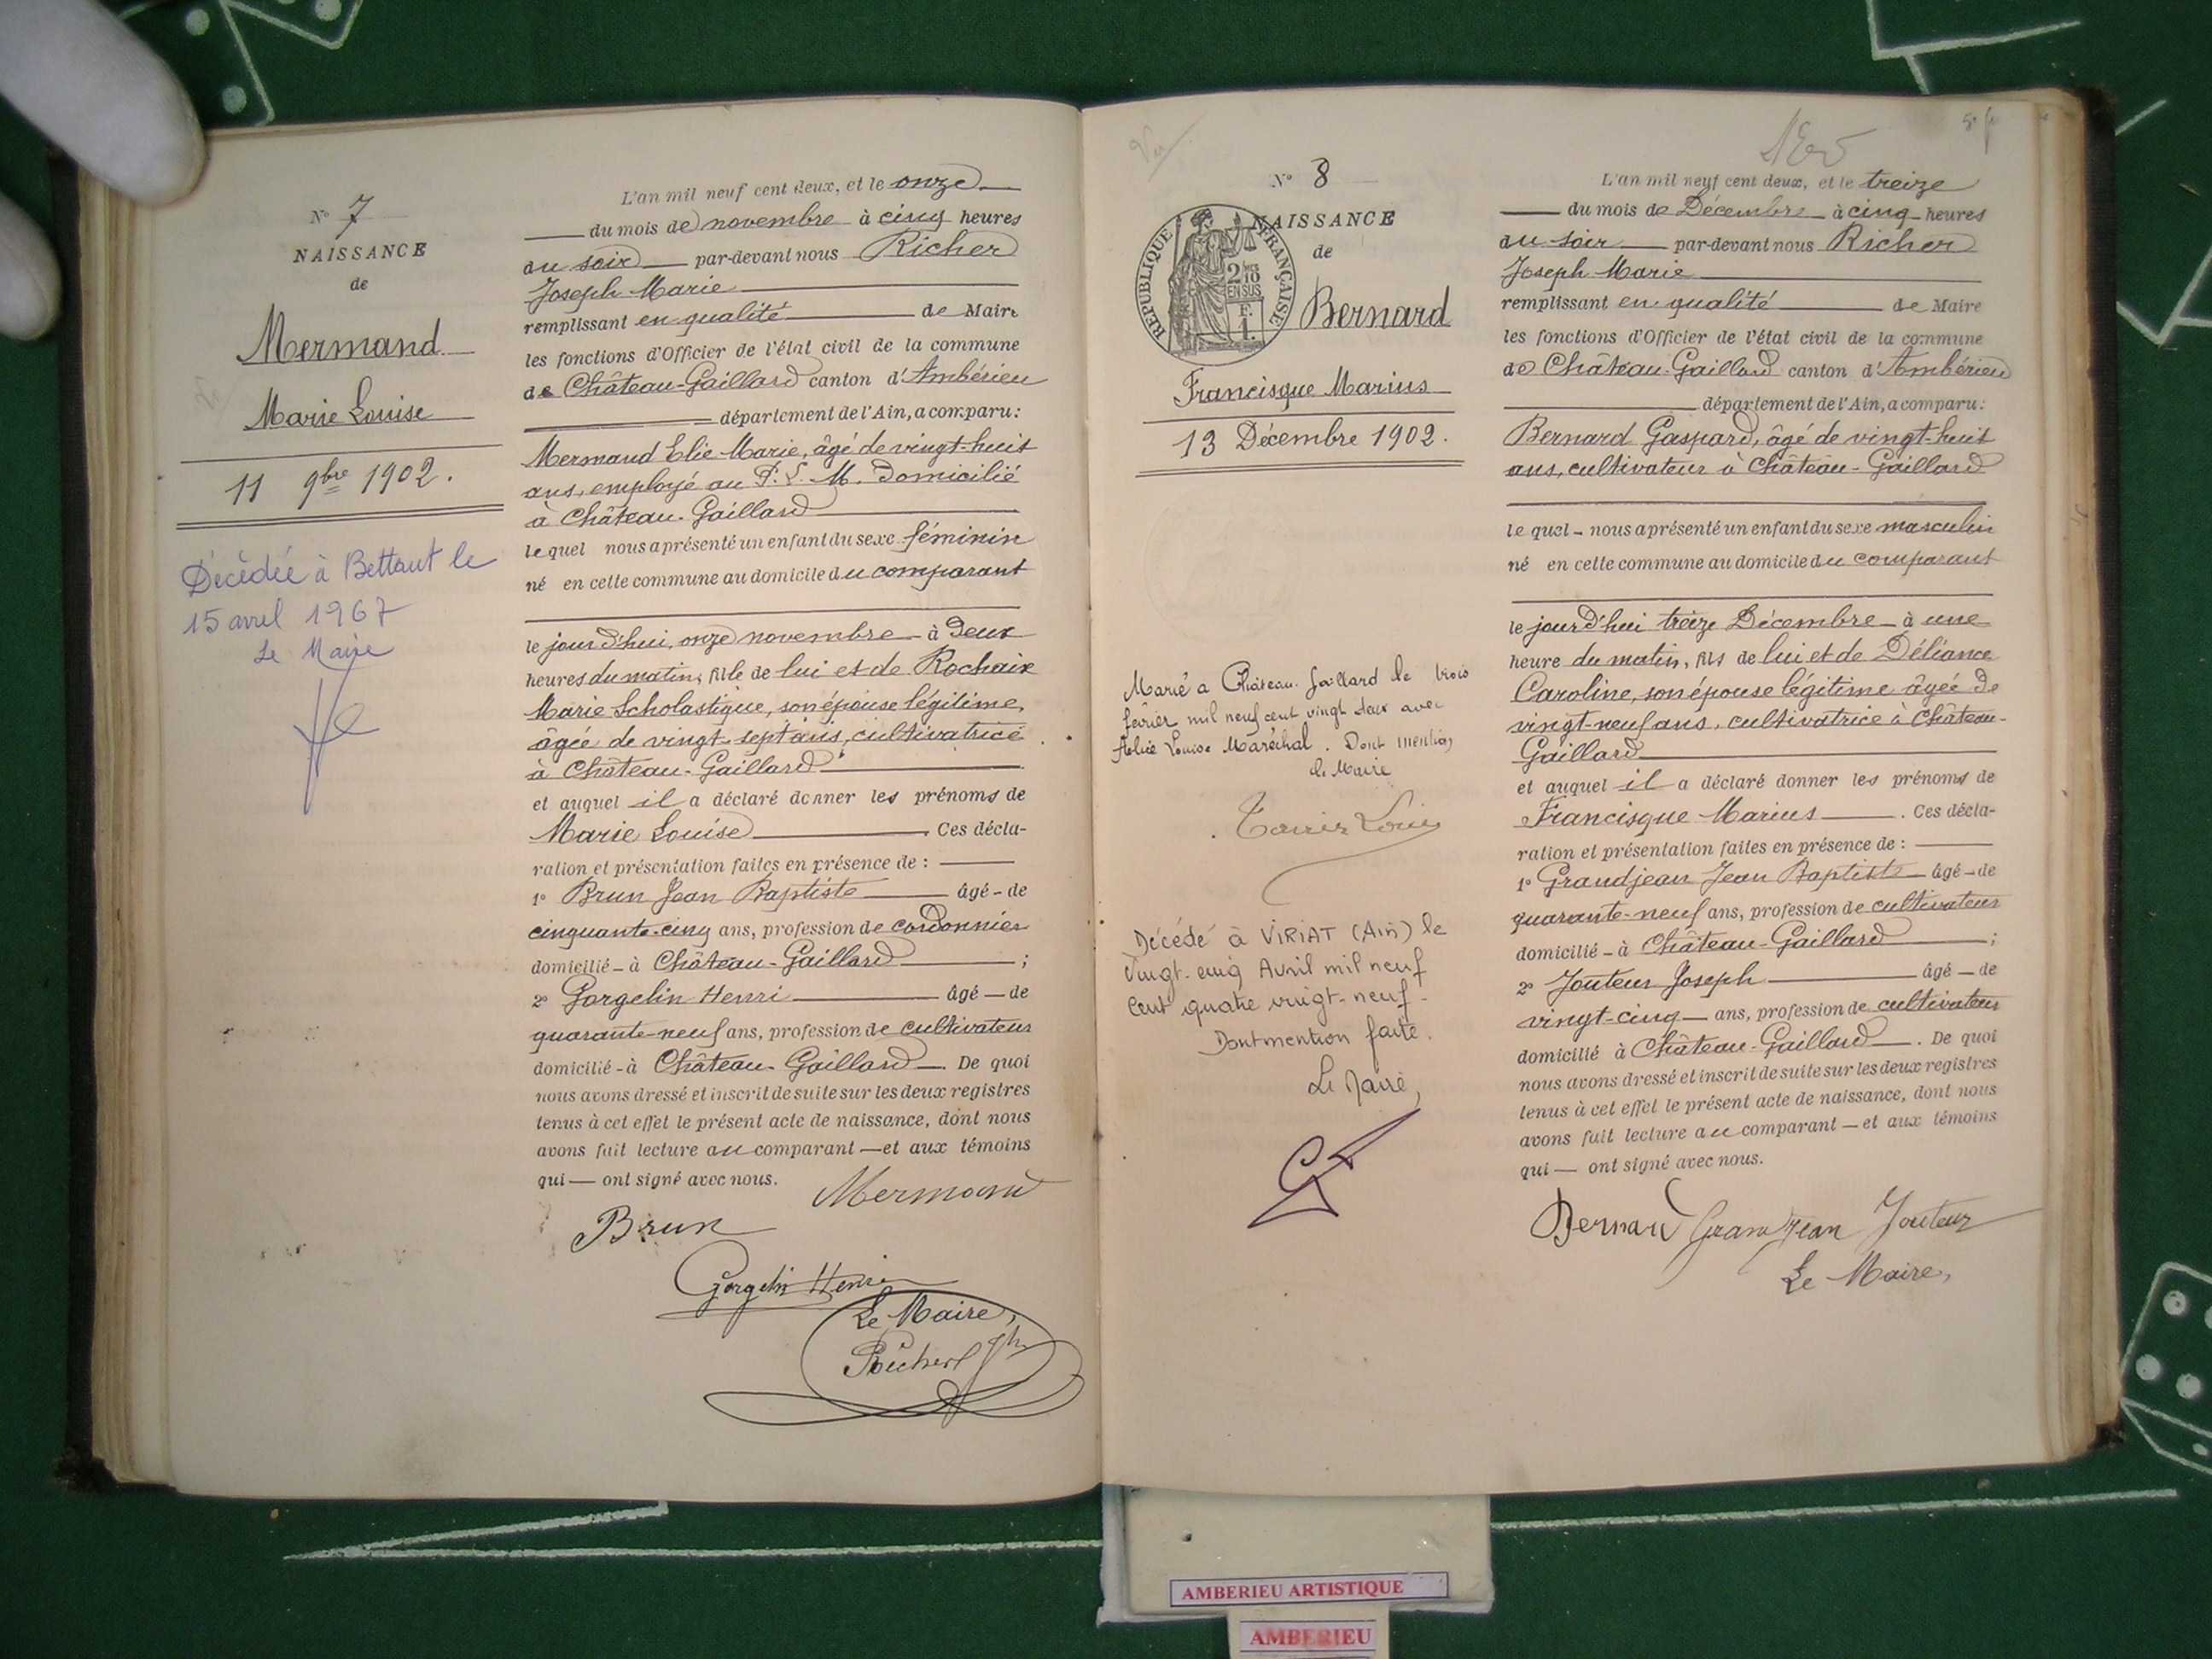 N° 7
NAISSANCE
de
Mermand
Marie Louise
11 9bre 1902.
Décédée à Bettant le
15 avril 1967
Le Maire
L'an mil neuf cent deux, et le onze
du mois de novembre à cinq heures
du soir par-devant nous Richer
Joseph Marie
remplissant en qualité de Maire
les fonctions d'Officier de l'état civil de la commune
de Château-Gaillard canton d'Ambérieu
département de l'Ain, a comparu:
Mermand Elie Marie, âgé de vingt-huit
ans, employé au P. L. M. Domicilié
à Château-Gaillard
lequel nous a présenté un enfant du sexe féminin
né en cette commune au domicile du comparant
le jourd'hui, onze novembre à deux
heures du matin, fille de lui et de Rochaix
Marie Scholastique, son épouse légitime,
âgée de vingt-sept ans, cultivatrice
à Château-Gaillard
et auquel il a déclaré donner les prénoms de
Marie Louise. Ces décla-
ration et présentation faites en présence de :
1° Brun Jean Baptiste âgé-de
cinquante-cinq ans, profession de cordonnier
domicilié-à Château-Gaillard ;
2° Gorgelin Henri âgé-de
quarante-neuf ans, profession de cultivateur
domicilié-à Château-Gaillard. De quoi
nous avons dressé et inscrit de suite sur les deux registres
tenus à cet effet le présent acte de naissance, dont nous
avons fait lecture au comparant — et aux témoins
qui — ont signé avec nous.
Mermand
Brun
Gorgelin Henri
Le Maire,
Richer Jh
N° 8
NAISSANCE
de
REPUBLIQUE FRANÇAISE
2/10
EN SUS
F.
1.
Bernard
Francisque Marius
13 Décembre 1902.
Marié a Château. Gaillard le trois
février mil neuf cent vingt deux avec
Louise Maréchal. Dont mention
Le Maire
Louis
Décédé à VIRIAT (Ain) le
Vingt-cinq Avril mil neuf
Cent quatre vingt-neuf-
Dont mention faite.
Le Maire,
L'an mil neuf cent deux, et le treize
du mois de Décembre à cinq heures
du soir par-devant nous Richer
Joseph Marie
remplissant en qualité de Maire
les fonctions d'Officier de l'état civil de la commune
de Château-Gaillard canton d'Ambérieu
département de l'Ain, a comparu:
Bernard Gaspard, âgé de vingt-huit
ans, cultivateur à Château-Gaillard
le quel - nous a présenté un enfant du sexe masculin
né en cette commune au domicile du comparant
le jourd'hui treize Décembre à une
heure du matin, fils de lui et de Déliance
Caroline, son épouse légitime âgée de
vingt-neuf ans, cultivatrice à Château-
Gaillard
et auquel il a déclaré donner les prénoms de
Francisque Marius. Ces décla-
ration et présentation faites en présence de :
1° Grandjean Jean Baptiste âgé-de
quarante-neuf ans, profession de cultivateur
domicilié-à Château-Gaillard ;
2° Jouteur Joseph âgé-de
vingt-cinq ans, profession de cultivateur
domicilié à Château-Gaillard. De quoi
nous avons dressé et inscrit de suite sur les deux registres
tenus à cet effet le présent acte de naissance, dont nous
avons fait lecture au comparant — et aux témoins
qui — ont signé avec nous.
Bernard Grandjean Jouteur
Le Maire,
AMBERIEU ARTISTIQUE
AMBERIEU